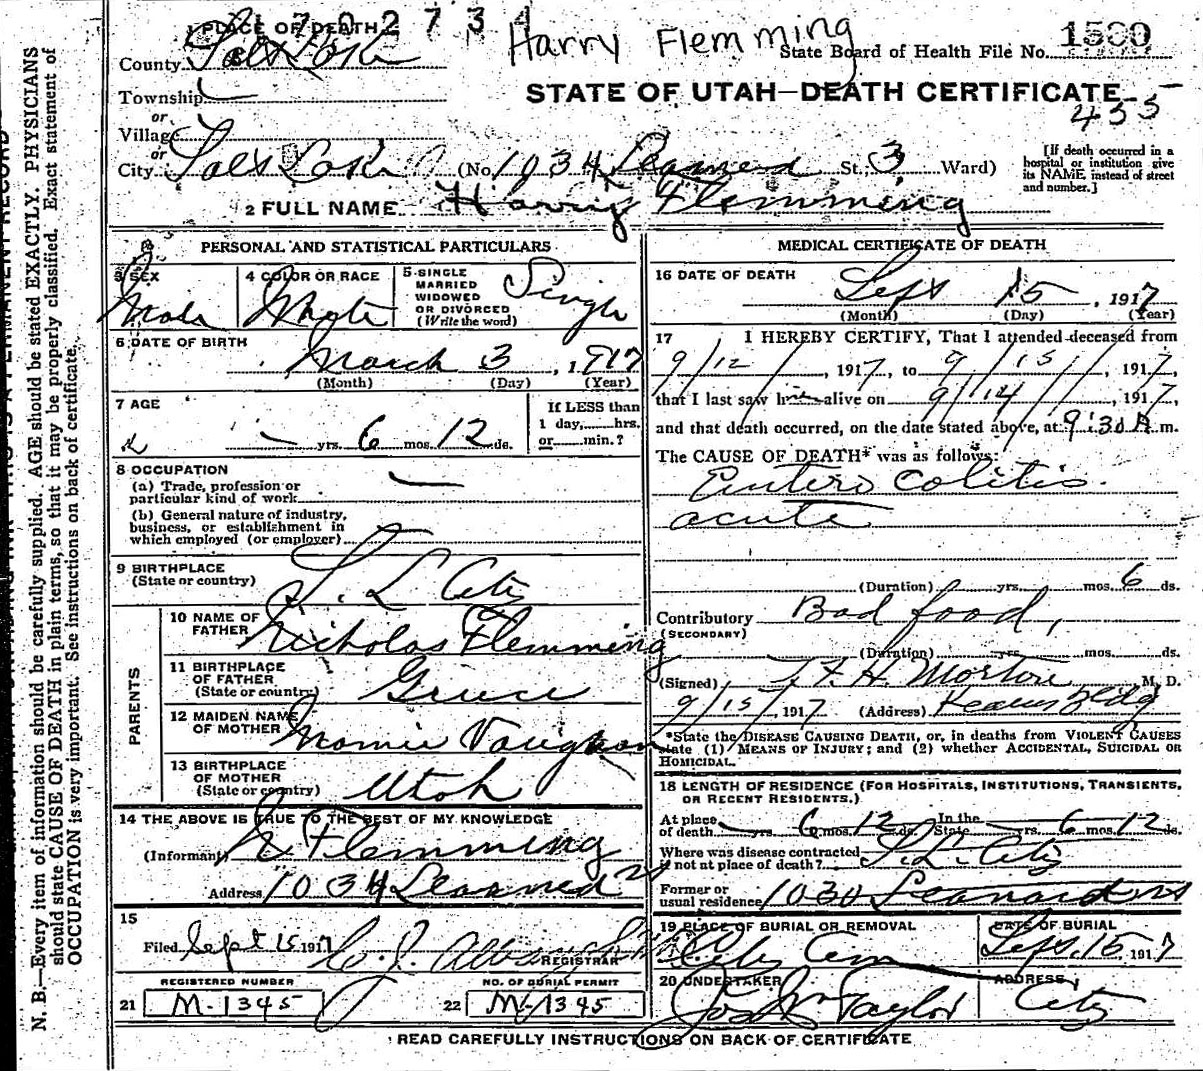 1702734
1 PLACE OF DEATH
Harry Flemming
State Board of Health File No. 1560
County Salt Lake
STATE OF UTAH—DEATH CERTIFICATE
Township
455
or
Village
or
City Salt Lake (No. 1034 Learned St. 3 Ward)
[If death occurred in a hospital or institution give its NAME instead of street and number.]
2 FULL NAME Harry Flemming
PERSONAL AND STATISTICAL PARTICULARS
3 SEX Male
4 COLOR OR RACE White
5 SINGLE MARRIED WIDOWED OR DIVORCED (Write the word) Single
6 DATE OF BIRTH March 3, 1917
(Month) (Day) (Year)
7 AGE — yrs. 6 mos. 12 ds.
If LESS than 1 day, hrs. or min.?
8 OCCUPATION
(a) Trade, profession or particular kind of work —
(b) General nature of industry, business, or establishment in which employed (or employer)
9 BIRTHPLACE (State or country) S. L City
PARENTS
10 NAME OF FATHER Nicholas Flemming
11 BIRTHPLACE OF FATHER (State or country) Greece
12 MAIDEN NAME OF MOTHER Mamie Vaughan
13 BIRTHPLACE OF MOTHER (State or country) Utah
14 THE ABOVE IS TRUE TO THE BEST OF MY KNOWLEDGE
(Informant) Flemming
Address 1034 Learned
15
Filed Sept 15 1917
REGISTRAR
REGISTERED NUMBER
21 M-1345
NO. OF BURIAL PERMIT
22 M-1345
MEDICAL CERTIFICATE OF DEATH
16 DATE OF DEATH
Sept 15, 1917
(Month) (Day) (Year)
17 I HEREBY CERTIFY, That I attended deceased from
9/12/, 1917, to 9/15/, 1917,
that I last saw him alive on 9/14/, 1917,
and that death occurred, on the date stated above, at 9:30 A m.
The CAUSE OF DEATH* was as follows:
Entero Colitis.
acute
(Duration) yrs. mos. 6 ds.
Contributory (SECONDARY) Bad food,
(Duration) yrs. mos. ds.
(Signed) H. Morton M. D.
9/15/ 1917 (Address) Kearns Bldg
*State the DISEASE CAUSING DEATH, or, in deaths from VIOLENT CAUSES state (1) MEANS OF INJURY; and (2) whether ACCIDENTAL, SUICIDAL OR HOMICIDAL.
18 LENGTH OF RESIDENCE (FOR HOSPITALS, INSTITUTIONS, TRANSIENTS, OR RECENT RESIDENTS.)
At place of death — yrs. 6 mos. 12 ds. In the State — yrs. 6 mos. 12 ds.
Where was disease contracted if not at place of death? S. L. City
Former or usual residence 1030 Leonard
19 PLACE OF BURIAL OR REMOVAL City Cem
DATE OF BURIAL Sept. 15 1917
20 UNDERTAKER Jos Wm Taylor
ADDRESS City
READ CAREFULLY INSTRUCTIONS ON BACK OF CERTIFICATE
N. B.—Every item of information should be carefully supplied. AGE should be stated EXACTLY. PHYSICIANS
should state CAUSE OF DEATH in plain terms, so that it may be properly classified. Exact statement of
OCCUPATION is very important. See instructions on back of certificate.